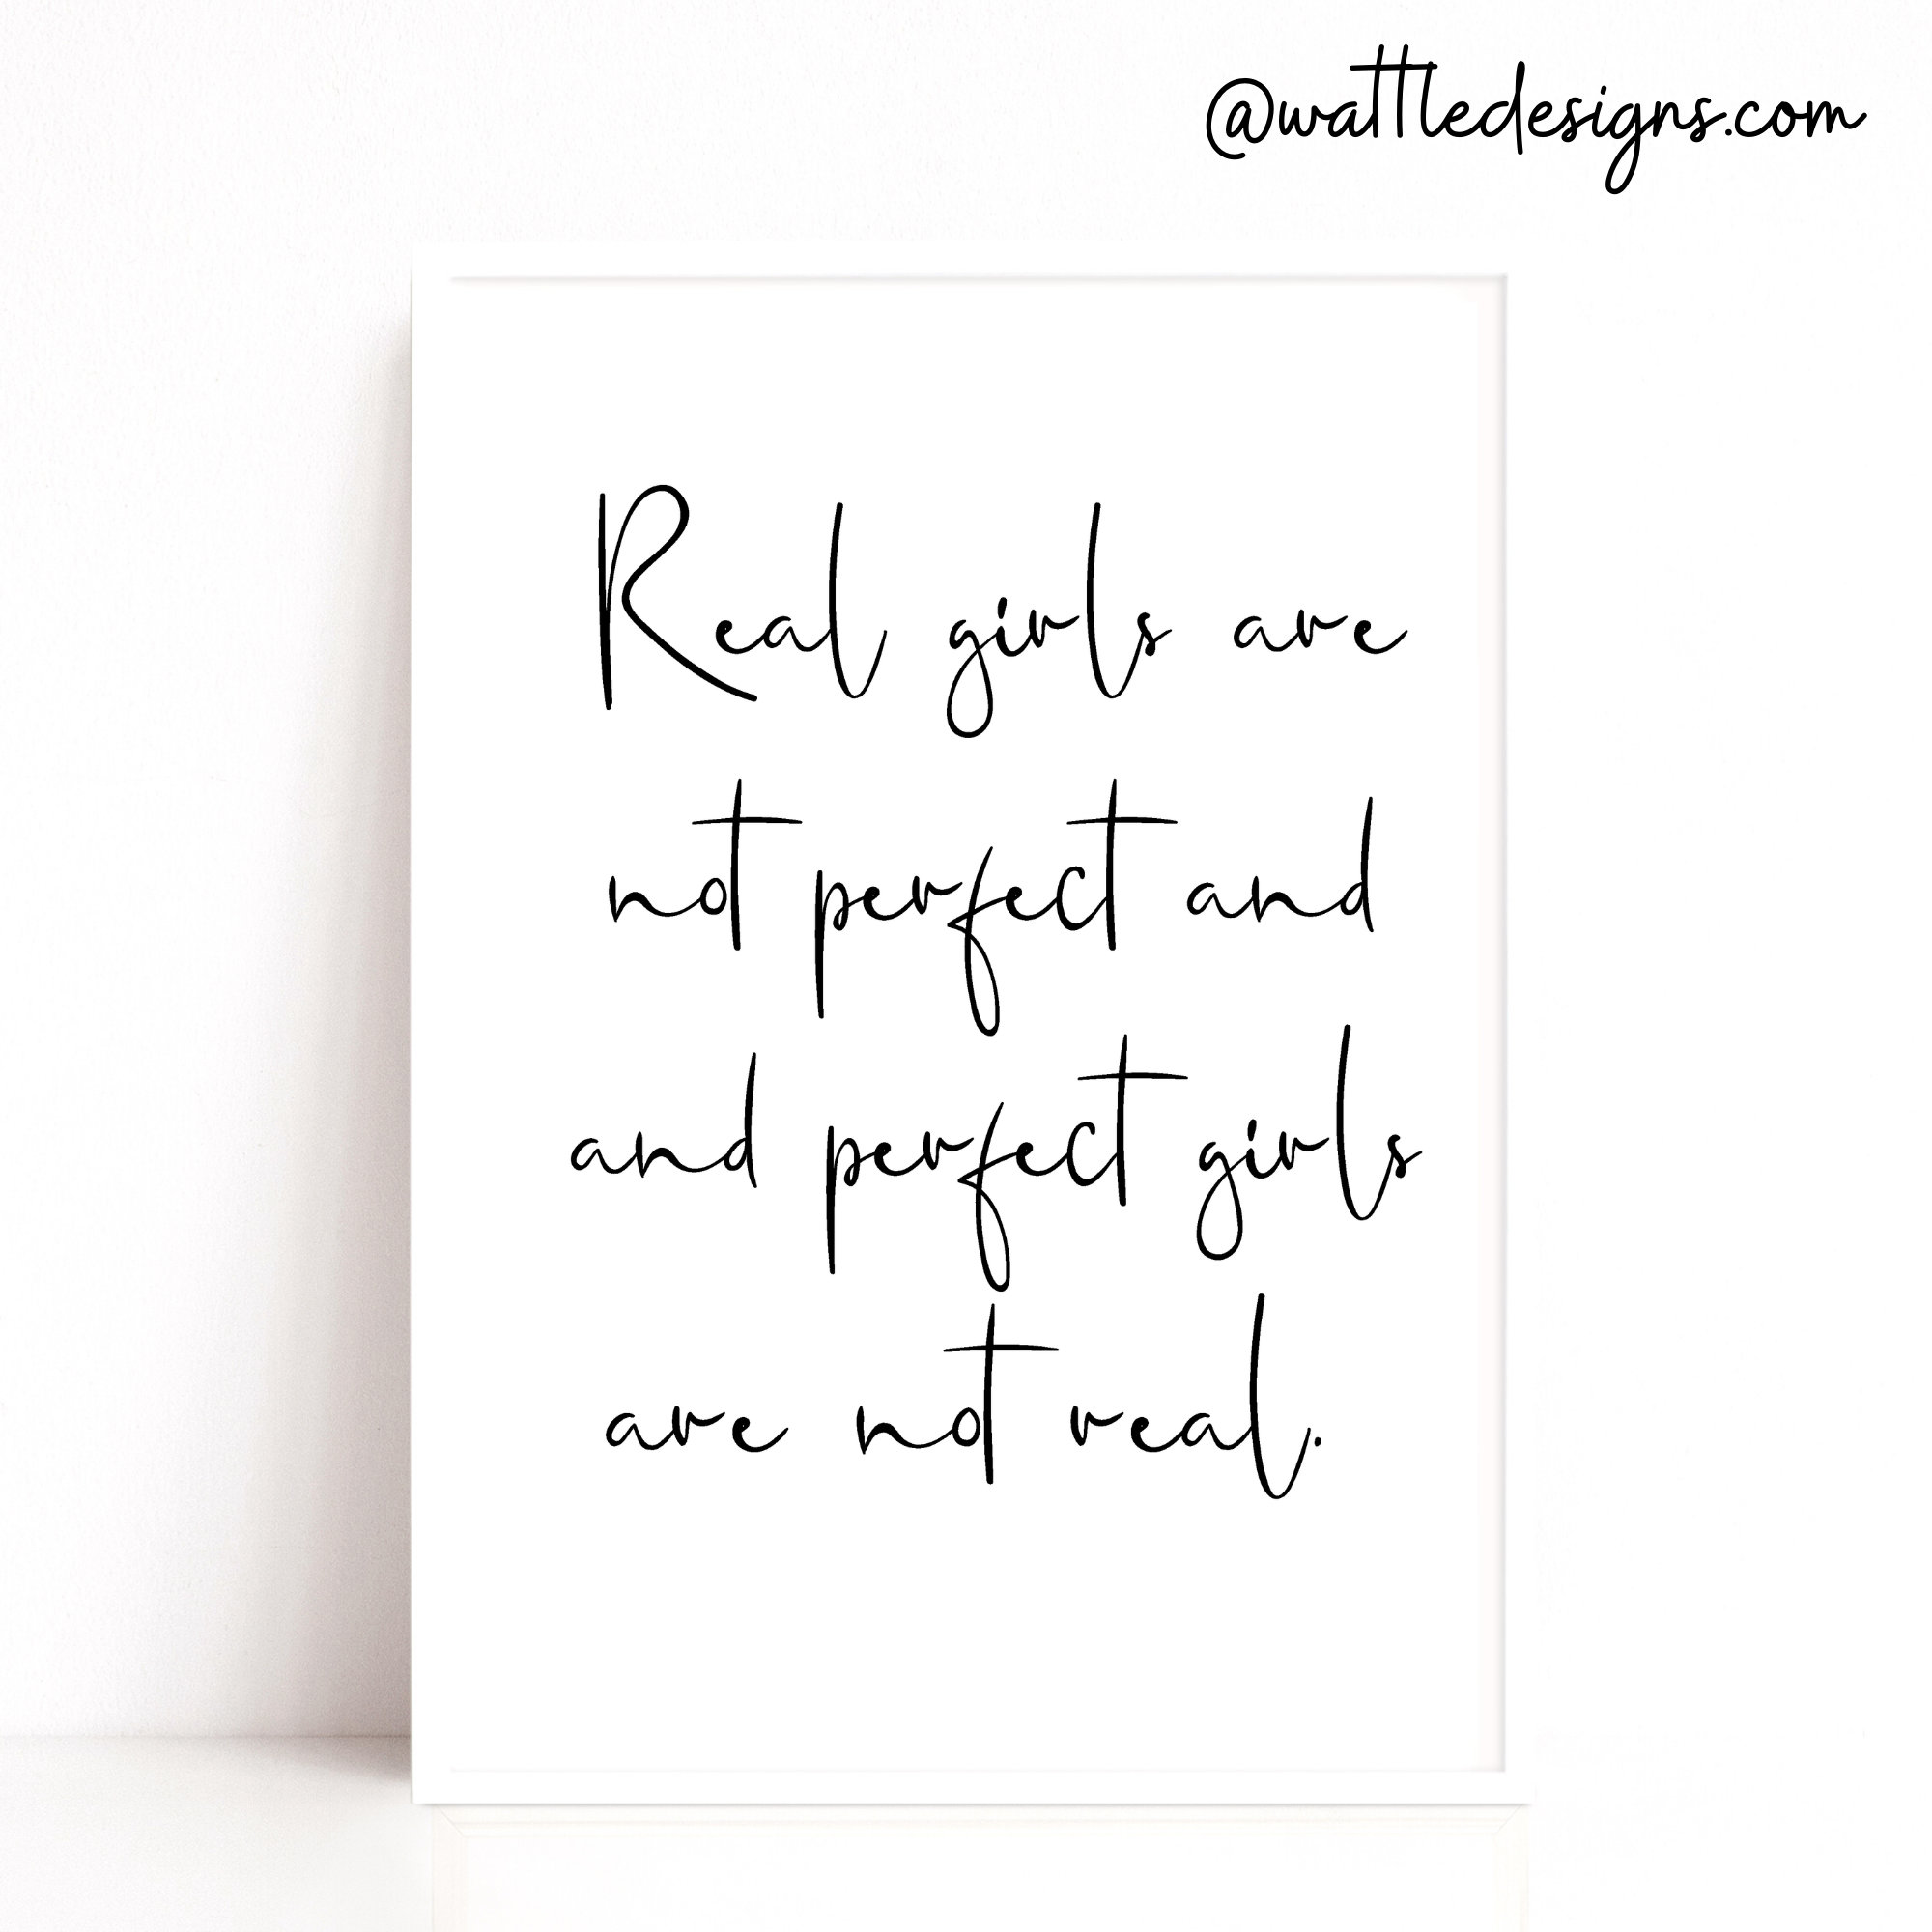 @wattledesigns.com
Real girls are
not perfect and
and perfect girls
are not real.